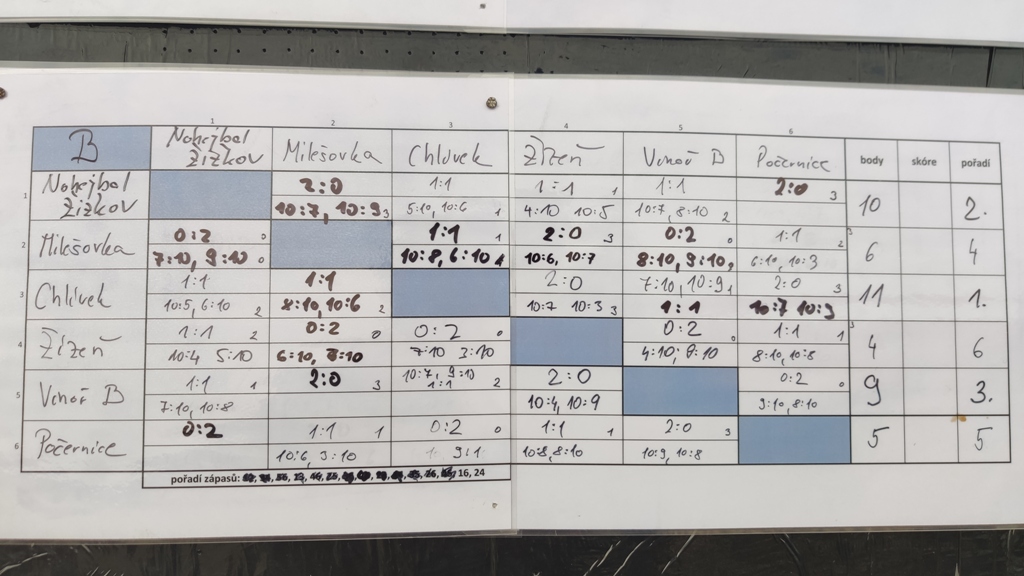 1 2 3 4 5 6
B Nohejbal Žižkov Milešovka Chlívek Žízeň Vinoř B Počernice body skóre pořadí
1 Nohejbal Žižkov 2:0 1:1 1:1 1 1:1 2:0 3 10 2.
10:7, 10:9 3 5:10, 10:6 1 4:10 10:5 10:7, 8:10 2
2 Milešovka 0:2 0 1:1 1 2:0 3 0:2 0 1:1 2 6 4
7:10, 9:10 0 10:8, 6:10 10:6, 10:7 8:10, 9:10, 6:10, 10:3
3 Chlívek 1:1 1:1 2:0 7:10, 10:9 1 2:0 3 11 1.
10:5, 6:10 2 8:10, 10:6 2 10:7 10:3 3 1:1 10:7 10:9
4 Žízeň 1:1 2 0:2 0 0:2 0 0:2 0 1:1 1 4 6
10:4 5:10 6:10, 8:10 7:10 3:10 4:10, 8:10 8:10, 10:8
5 Vinoř B 1:1 1 2:0 3 10:7, 9:10 1:1 2 2:0 0:2 0 9 3.
7:10, 10:8 10:4, 10:9 9:10, 8:10
6 Počernice 0:2 1:1 1 0:2 0 1:1 1 2:0 3 5 5
10:6, 3:10 10:8, 8:10 10:9, 10:8
pořadí zápasů: 16, 24